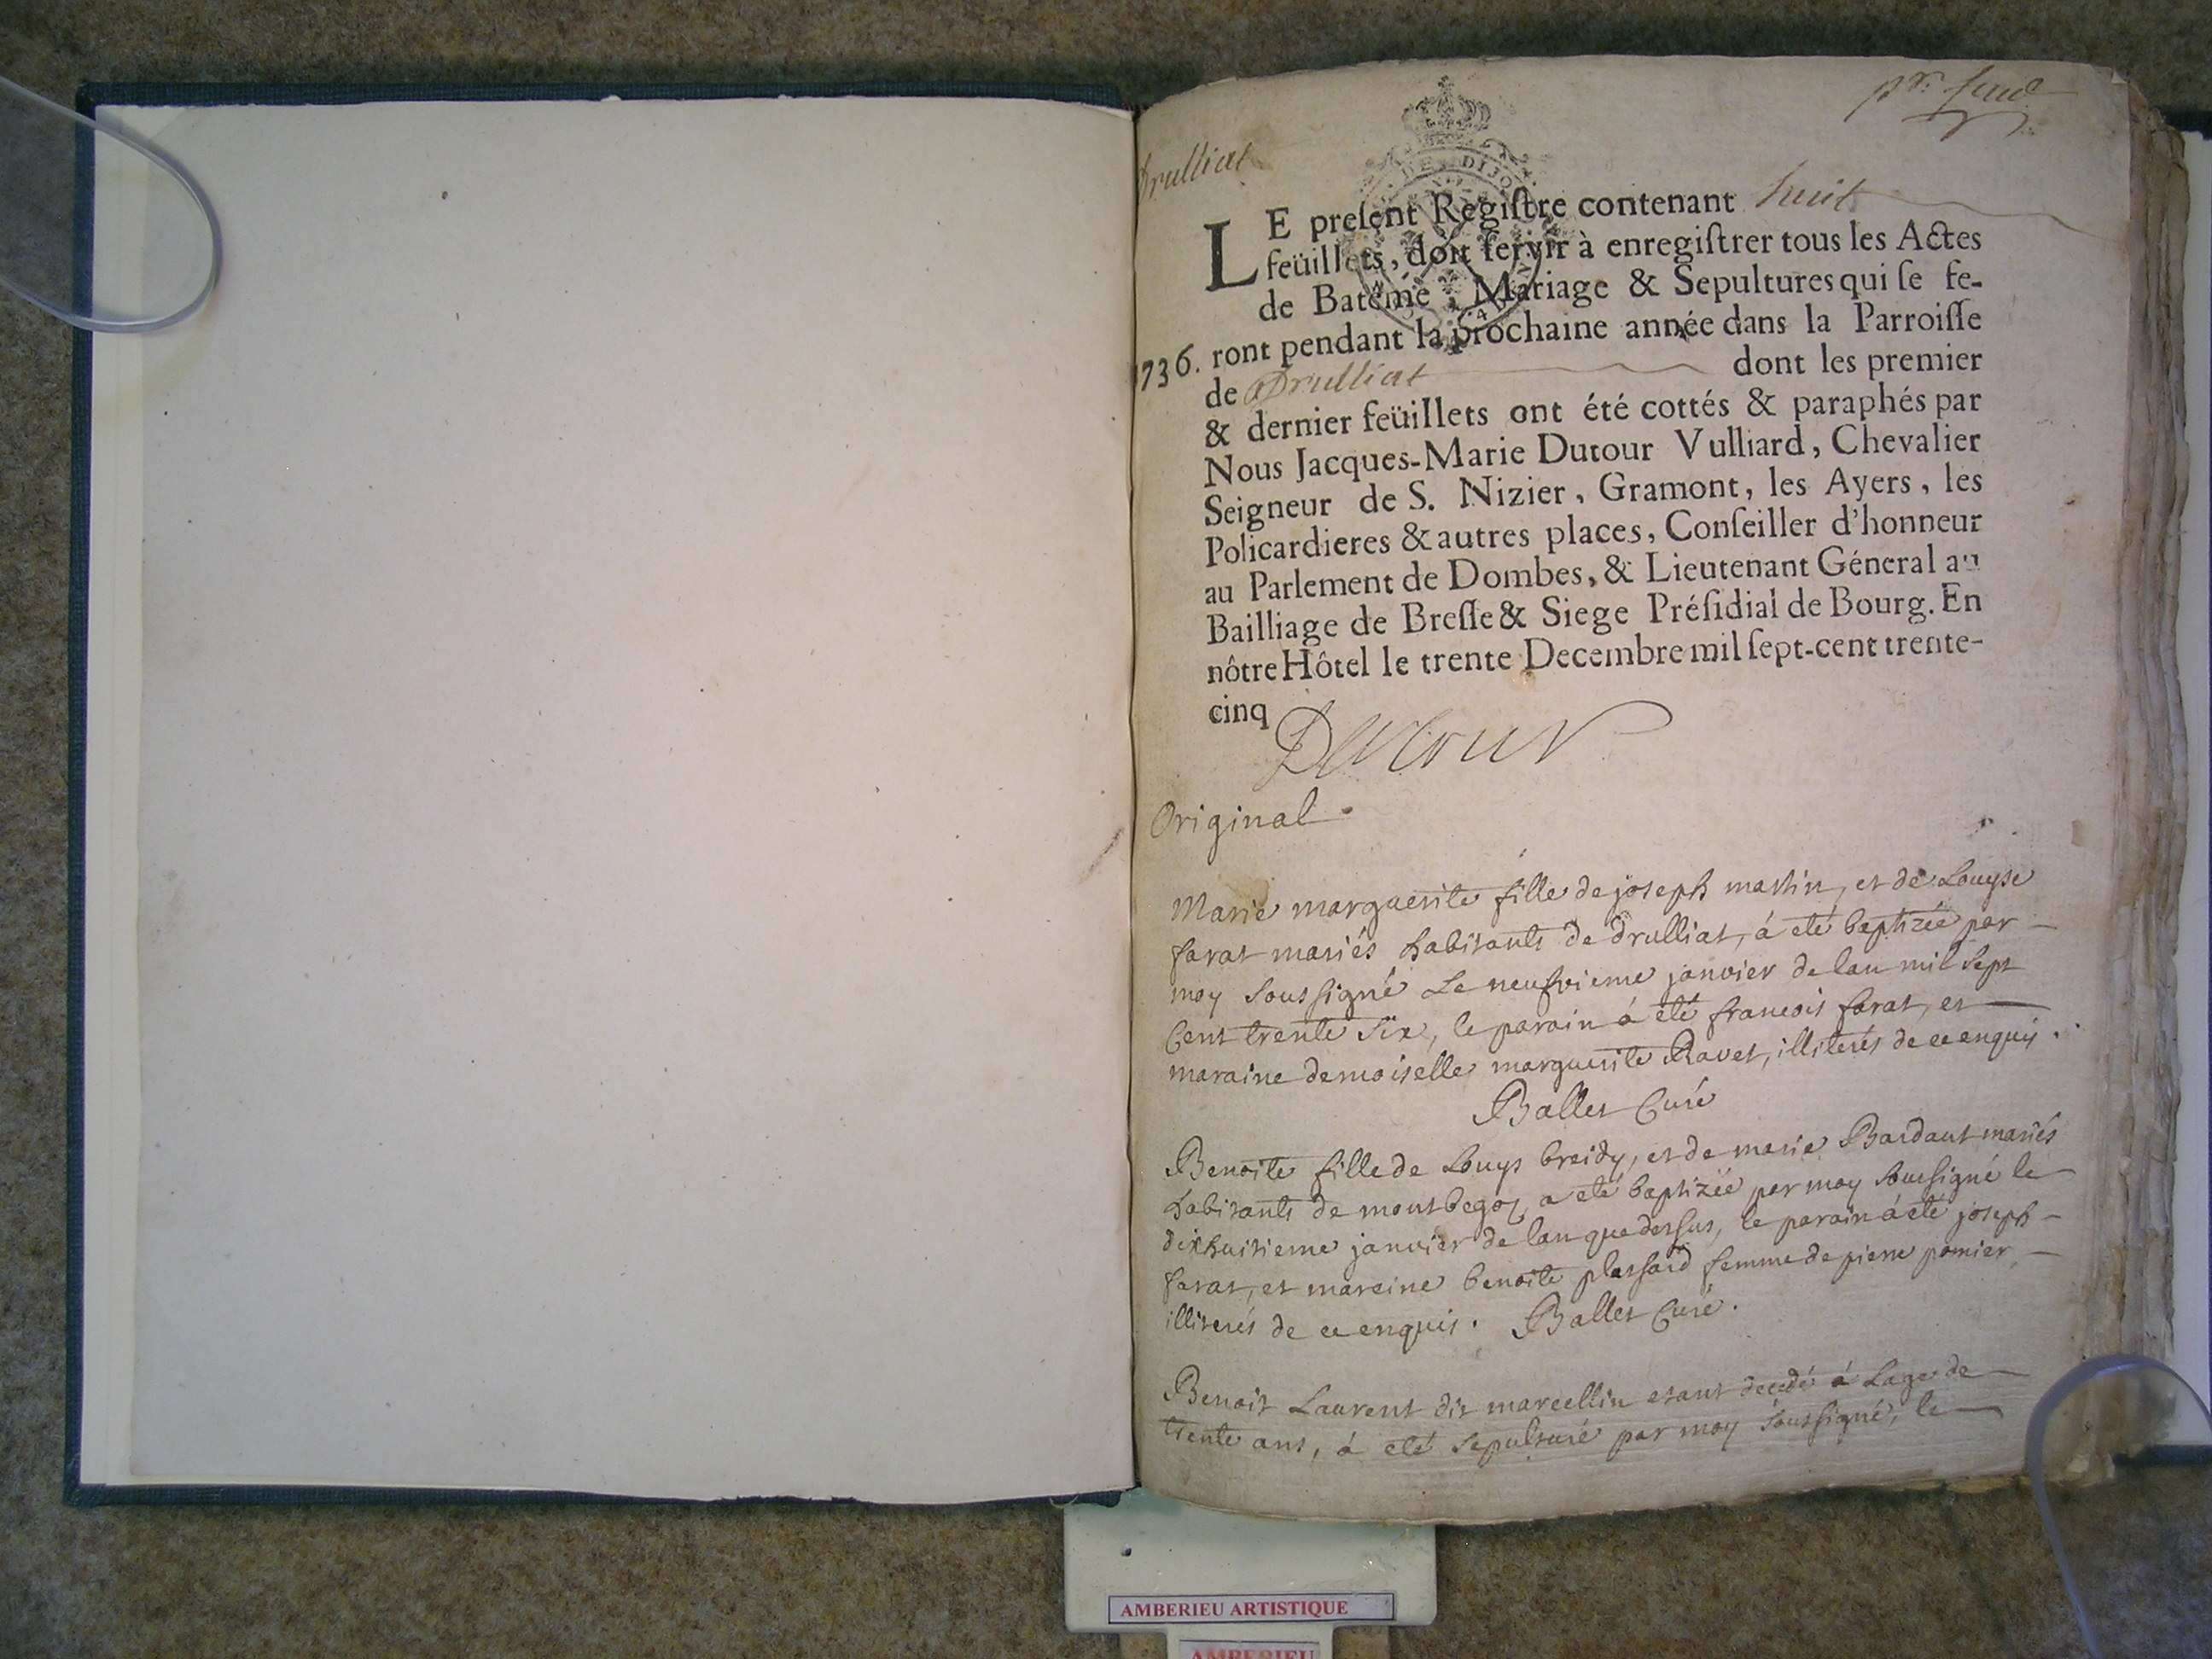 pr. feuil
Drulliat
DE DIJO
LE preſent Regiſtre contenant huit
feüillets, doit ſervir à enregiſtrer tous les Actes
de Batême, Mariage & Sepultures qui ſe fe-
1736. ront pendant la prochaine année dans la Parroiſſe
de Drulliat dont les premier
& dernier feüillets ont été cottés & paraphés par
Nous Jacques-Marie Dutour Vulliard, Chevalier
Seigneur de S. Nizier, Gramont, les Ayers, les
Policardieres & autres places, Conſeiller d'honneur
au Parlement de Dombes, & Lieutenant Géneral au
Bailliage de Breſſe & Siege Préſidial de Bourg. En
nôtre Hôtel le trente Decembre mil ſept-cent trente-
cinq
Dutour
Original
Marie marguerite fille de joseph martin, et de Louyse
farat mariés habitants de drulliat, à eté baptizée par
moy soussigné Le neufvieme janvier de lan mil sept
Cent trente six, le parain à eté francois farat, et
maraine demoiselle marguerite Ravet, illiterés de ce enquis.
Ballet Curé
Benoite fille de Louys breidy, et de marie Bardaut mariés
habitants de montbegoz, a eté baptizée par moy soussigné le
dixhuitieme janvier de lan que dessus, le parain à eté joseph
farat, et maraine benoite plassard femme de pierre pomier
illiterés de ce enquis. Ballet Curé.
Benoit Laurent dit marcellin etant decedé à Lage de
trente ans, à eté sepulturé par moy soussigné, le
AMBERIEU ARTISTIQUE
AMBERIEU